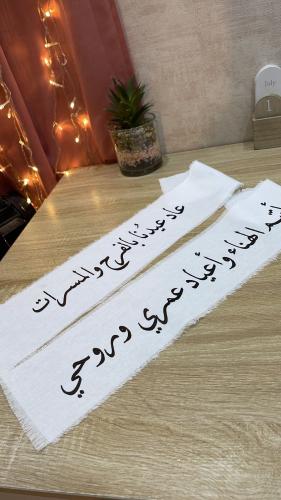 عاد عيدنا بالفرح والمسرات
أنتم الهناء وأعياد عمري وروحي
July
1